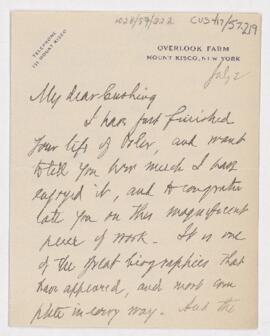 TELEPHONE
MOUNT KISCO
OVERLOOK FARM
MOUNT KISCO, NEW YORK
July 2
My dear Cushing
I have just finished
your life of Osler, and want
to tell you how much I have
enjoyed it, and to congratu
late you on this magnificent
piece of work. It is one
of the great biographies that
have appeared, and most com
plete in every way. And the